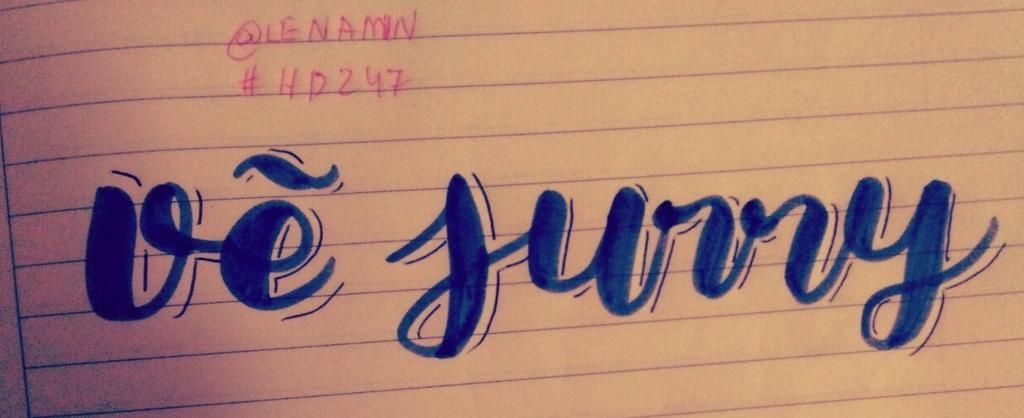 @LENAMIN
#HD247
vẽ jurry